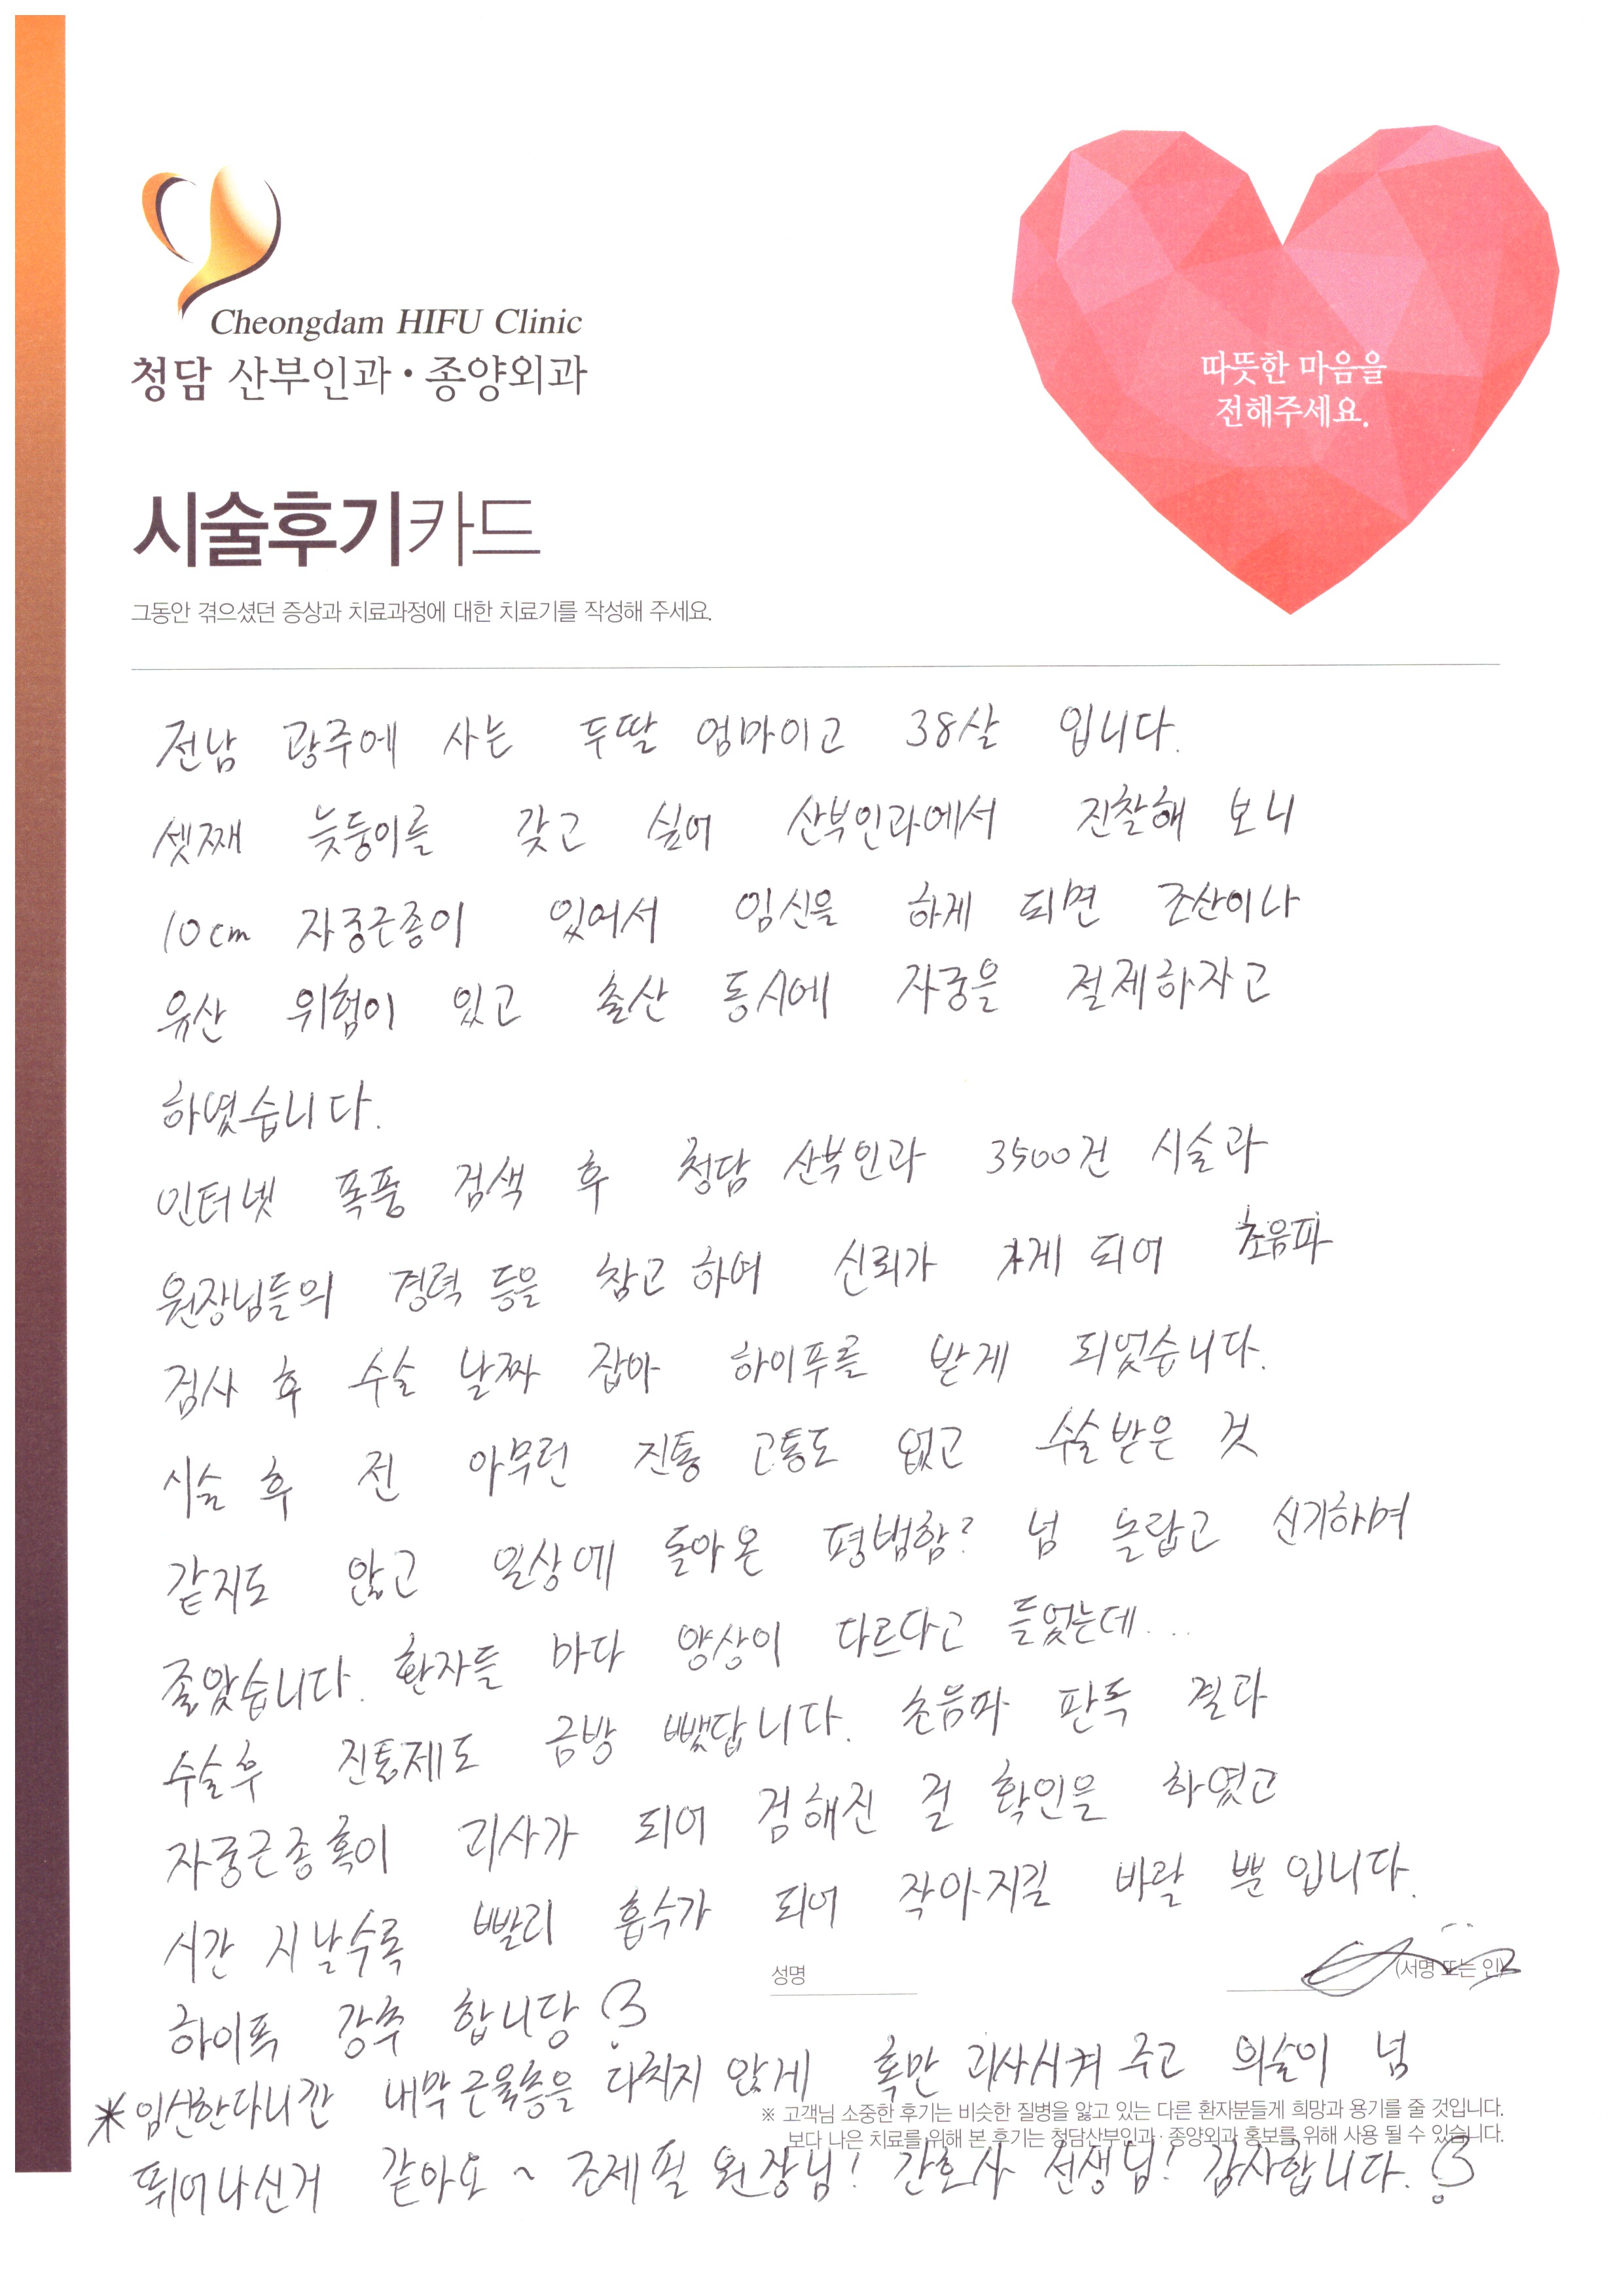 Cheongdam HIFU Clinic
청담 산부인과·종양외과
따뜻한 마음을
전해주세요.
시술후기카드
그동안 겪으셨던 증상과 치료과정에 대한 치료기를 작성해 주세요.
전남 광주에 사는 두딸 엄마이고 38살 입니다.
셋째 늦둥이를 갖고 싶어 산부인과에서 진찰해 보니
10cm 자궁근종이 있어서 임신을 하게 되면 조산이나
유산 위험이 있고 출산 동시에 자궁을 절제하자고
하였습니다.
인터넷 폭풍 검색 후 청담 산부인과 3500건 시술과
원장님들의 경력 등을 참고 하여 신뢰가 가게 되어 초음파
검사 후 수술 날짜 잡아 하이푸를 받게 되었습니다.
시술 후 전 아무런 진통 고통도 없고 수술받은 것
같지도 않고 일상에 돌아온 평범함? 넘 놀랍고 신기하며
좋았습니다. 환자들 마다 양상이 다르다고 들었는데...
수술후 진통제도 금방 뺐답니다. 초음파 판독 결과
자궁근종혹이 괴사가 되어 검해진 걸 확인을 하였고
시간 지날수록 빨리 흡수가 되어 작아지길 바랄 뿐입니다.
성명 (서명 또는 인)
하이푹 강추 합니당
※임신한다니깐 내막근육층을 다치지 않게 혹만 괴사시켜 주고 의술이 넘
※ 고객님 소중한 후기는 비슷한 질병을 앓고 있는 다른 환자분들게 희망과 용기를 줄 것입니다.
보다 나은 치료를 위해 본 후기는 청담산부인과·종양외과 홍보를 위해 사용 될 수 있습니다.
뛰어나신거 같아요 ~ 조제필 원장님! 간호사 선생님! 감사합니다.